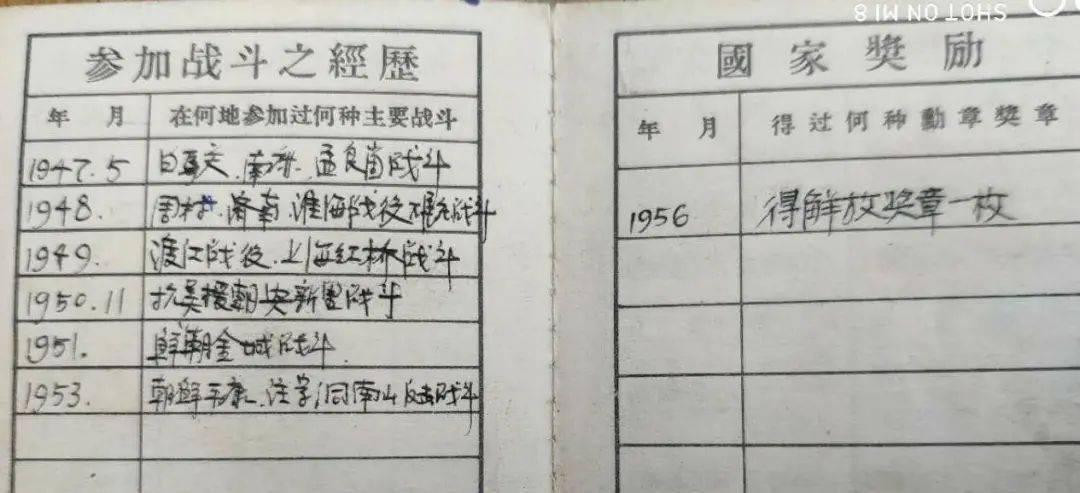 SHOT ON MI 8
参加战斗之經歷
年 月 在何地参加过何种主要战斗
1947.5 白马关、南麻、孟良崮战斗
1948. 周村、济南、淮海战役 战斗
1949. 渡江战役、上海红桥战斗
1950.11 抗美援朝 新兴战斗
1951. 鲜朝金城战斗
1953. 朝鲜平康、注字洞南山反击战斗
國家獎励
年 月 得过何种勳章獎章
1956 得解放奖章一枚